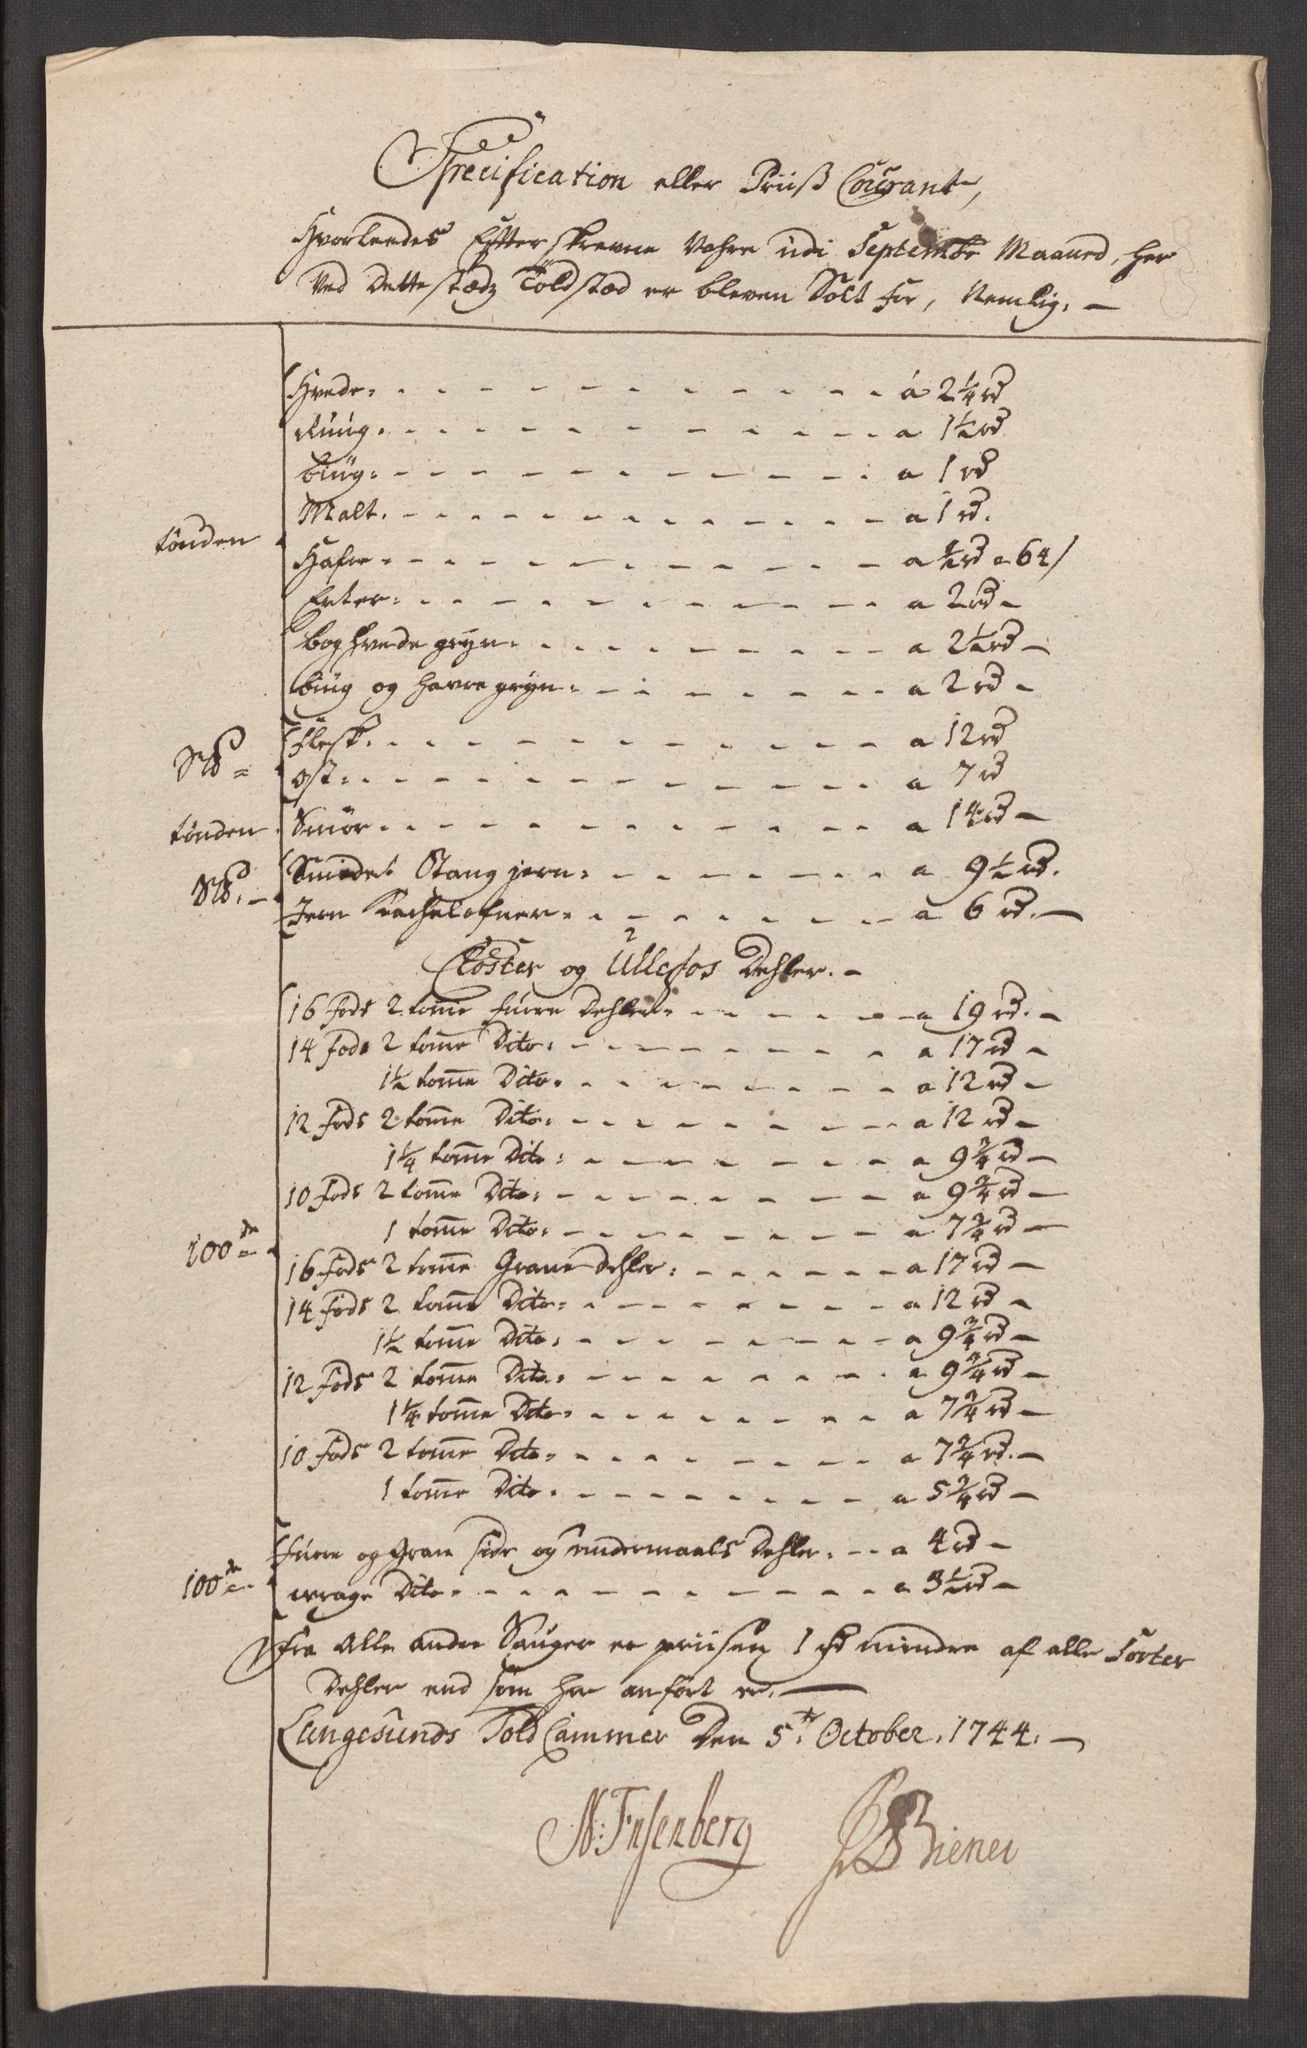 Specification eller Priiß Courant,
Hvorleedes Efter skrevne Vahre udi Septembr Maaned, her
Ved Dette stædz Told stæd er bleven Solt for, Nemlig. –
Hvede. á 2¼ rd
Rúúg. a 1½ rd
biúg. a 1 rd
Malt. a 1 rd.
tönden
Hafre. a ½ rd a 64 /
Erter. a 2 rd –
boghvede gryn. a 2½ rd –
biúg og havre gryn. a 2 rd –
Flesk. a 12 rd
S℔ =
ost. a 7 rd
tönden Smör. a 14 rd –
Smidet Stang jern. a 9½ rd.
S℔. –
Jern Kachelofner. a 6 rd. –
Closter og Ullefos Dehler. –
16 fods 2 tome fúrre Dehler. a 19 rd. –
14 fods 2 tome Dito. a 17 rd –
1½ tome Dito. a 12 rd –
12 fods 2 tome Dito. a 12 rd –
1¼ tome Dito. a 9¾ rd –
10 fods 2 tome Dito. a 9¾ rd –
1 tome Dito. a 7¾ rd –
100de
16 fods 2 tome Grane Dehler. a 17 rd –
14 fods 2 tome Dito. a 12 rd –
1½ tome Dito. a 9¾ rd –
12 fods 2 tome Dito. a 9¾ rd –
1¼ tome Dito. a 7¾ rd –
10 fods 2 tome Dito. a 7¾ rd. –
1 tome Dito. a 5¾ rd –
fúrre og Gran side og undermaals Dehler. a 4 rd –
100de wrage Dito. a 3½ rd –
fra Alle andre Sauger er priisen 1 rd mindre af alle Sorter
Dehler end som her anfört er. –
Langesunds Told Cammer Den 5te October. 1744. –
N: Ensenberg Biener